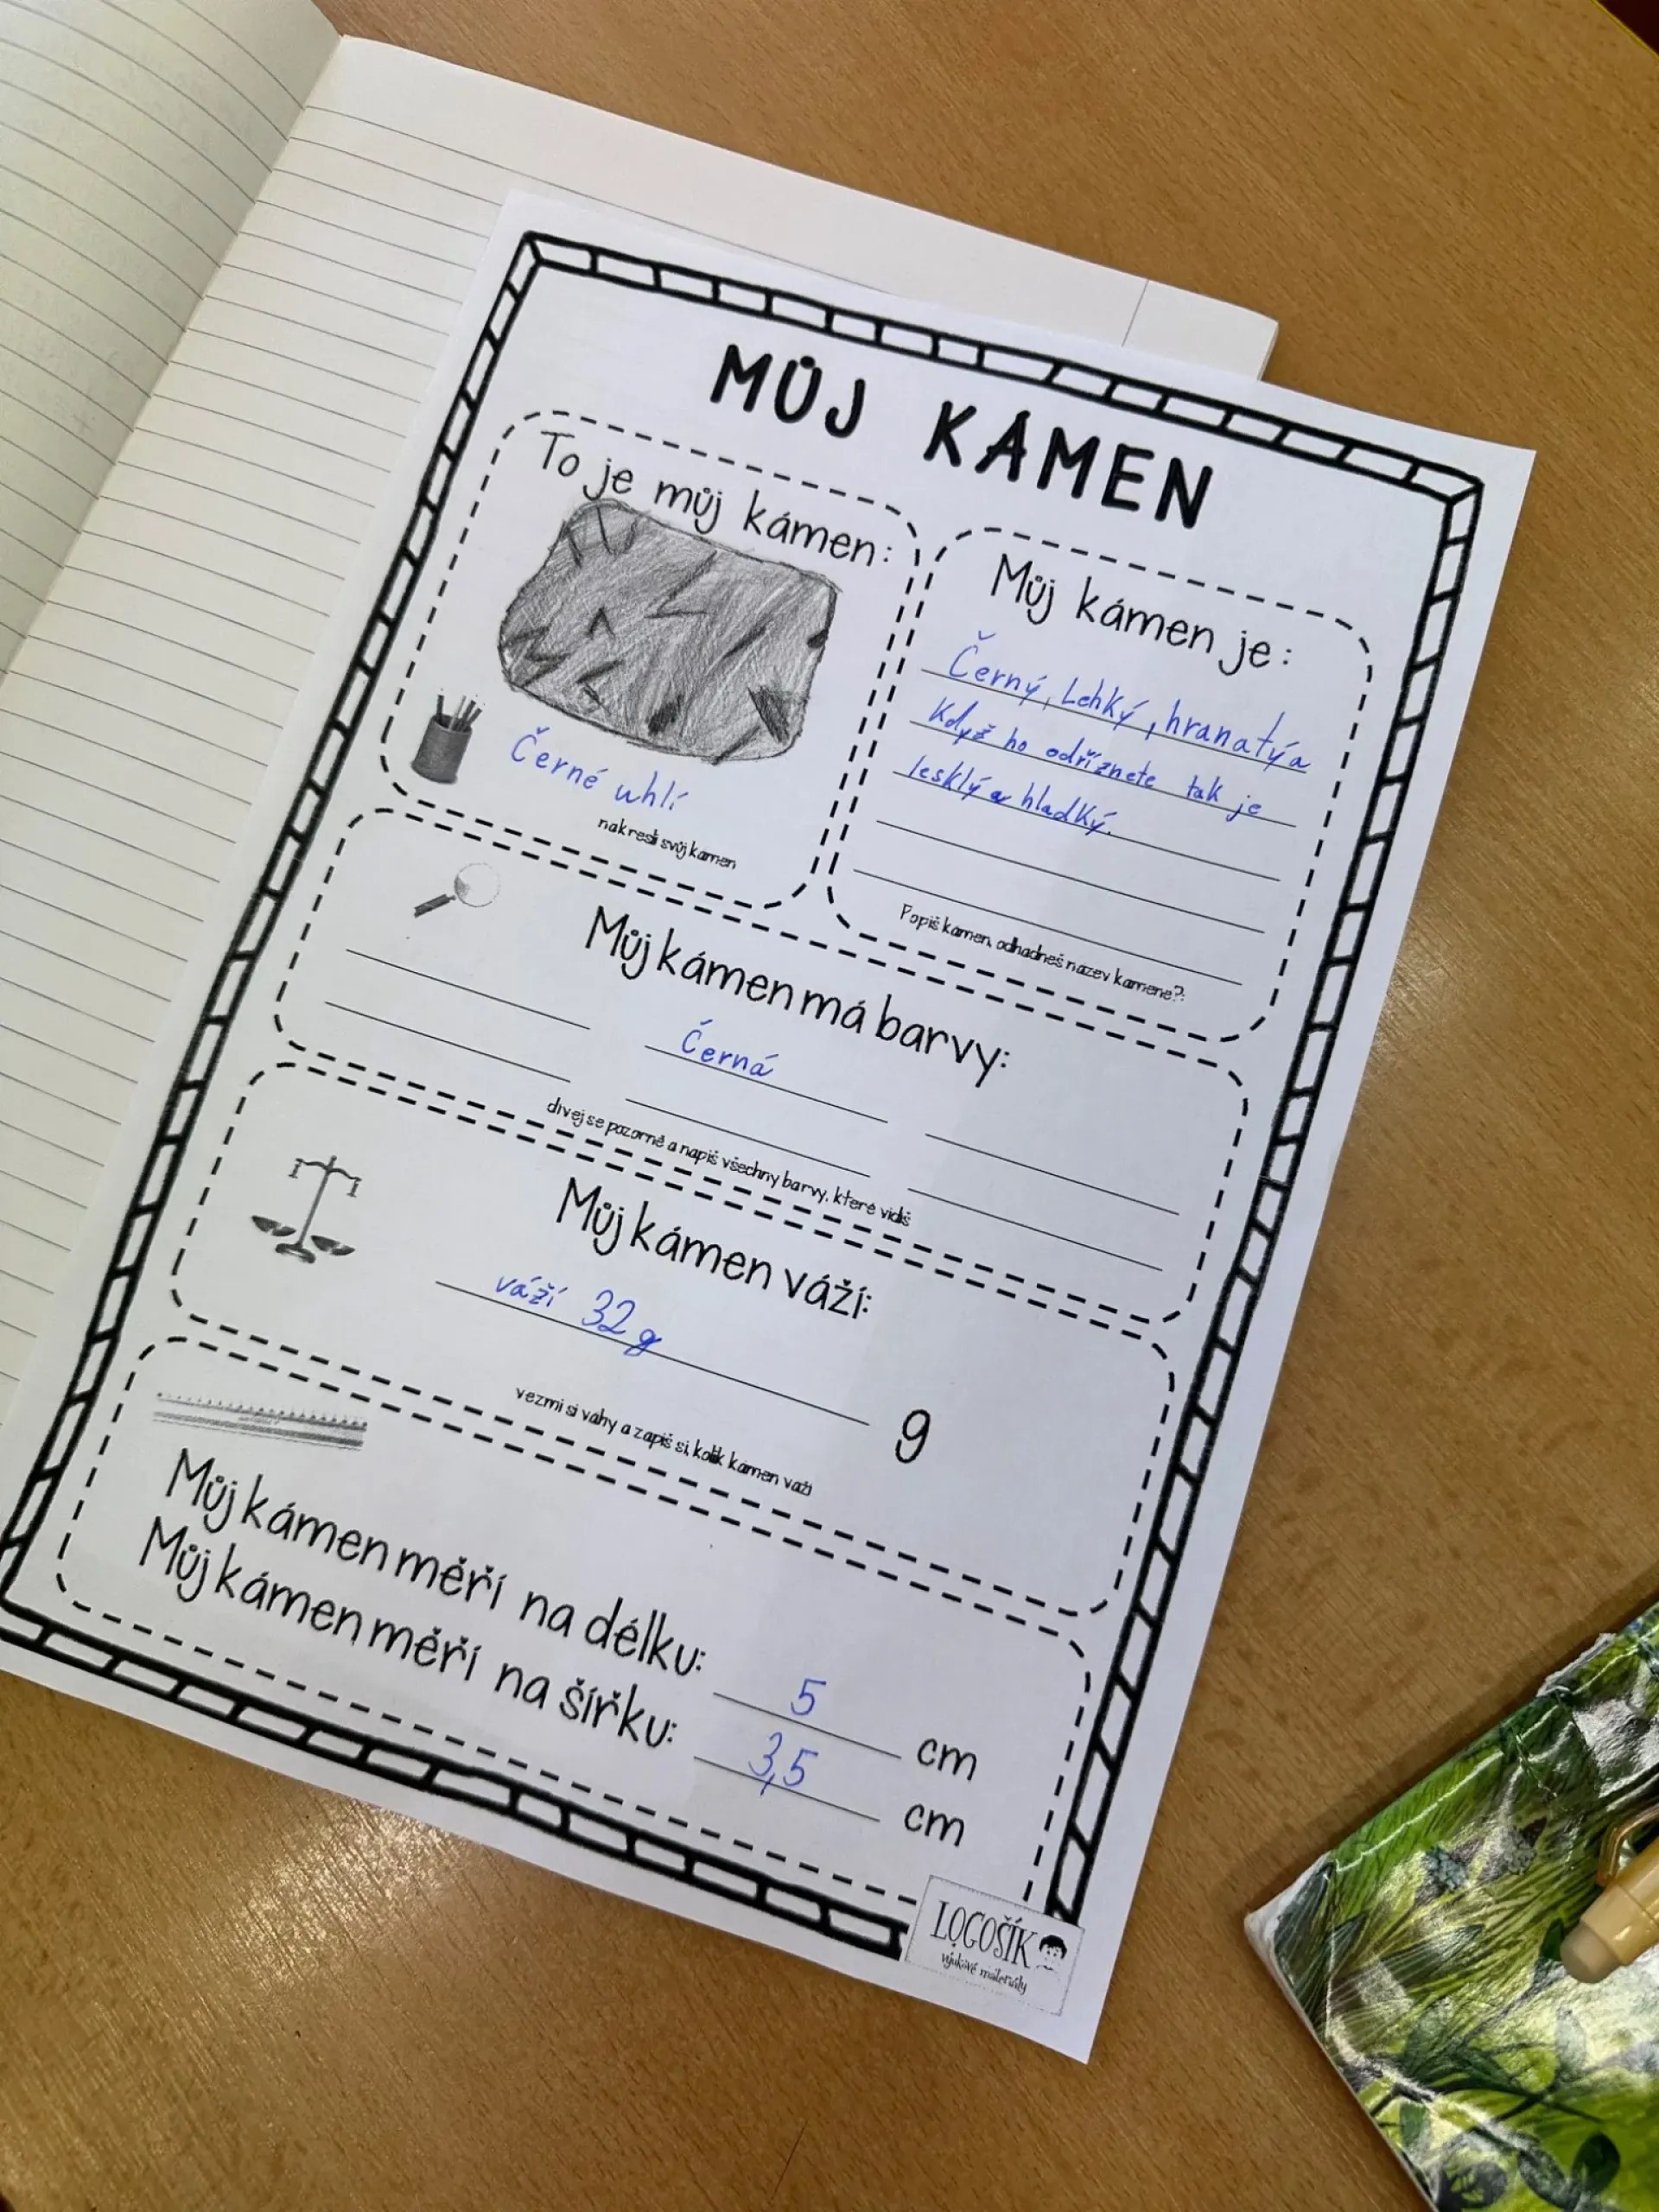 MŮJ KÁMEN
To je můj kámen:
Černé uhlí
nakresli svůj kámen
Můj kámen je:
Černý, Lehký, hranatý a
Když ho odříznete tak je
lesklý a hladký.
Popiš kámen, odhadneš název kamene?:
Můj kámen má barvy:
Černá
dívej se pozorně a napiš všechny barvy, které vidíš
Můj kámen váží:
váží 32 g
g
vezmi si váhy a zapiš si, kolik kámen váží
Můj kámen měří na délku: 5 cm
Můj kámen měří na šířku: 3,5 cm
LOGOŠÍK
výukové materiály